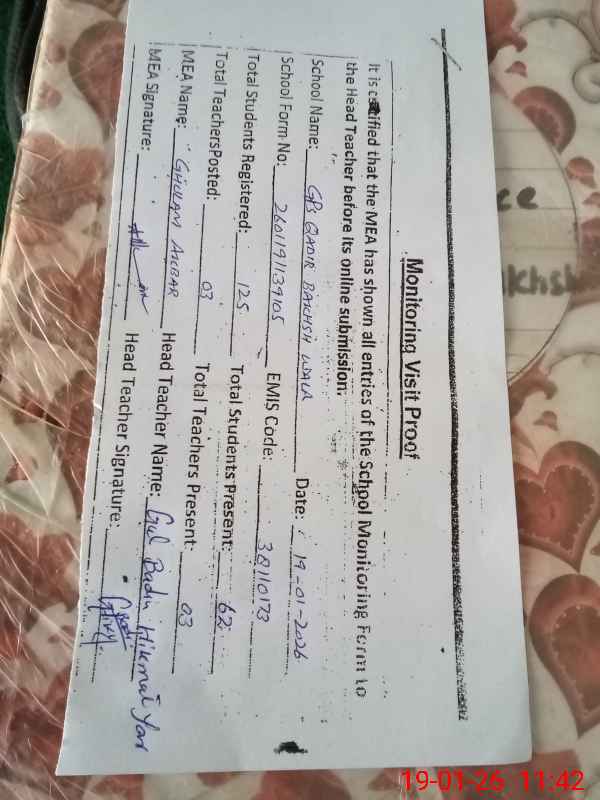 Monitoring Visit Proof
It is certified that the MEA has shown all entries of the School Monitoring Form to
the Head Teacher before its online submission.
School Name: GPS QADIR BAKHSH WALA Date: 19-01-2026
School Form No: 2601191139105 EMIS Code: 38110173
Total Students Registered: 125 Total Students Present: 62
Total TeachersPosted: 03 Total Teachers Present: 03
MEA Name: GHULAM AKBAR Head Teacher Name: Gul Badin Hikmat Yar
MEA Signature: Head Teacher Signature:
ce
akhsh
19-01-26 11:42